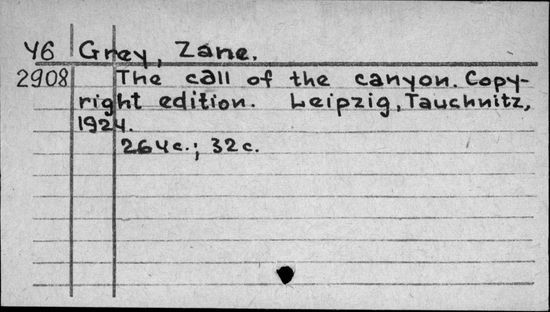 У6 Grey, Zane.
2908 The call of the canyon. Copy-
right edition. Leipzig, Tauchnitz,
1924.
264c.; 32c.